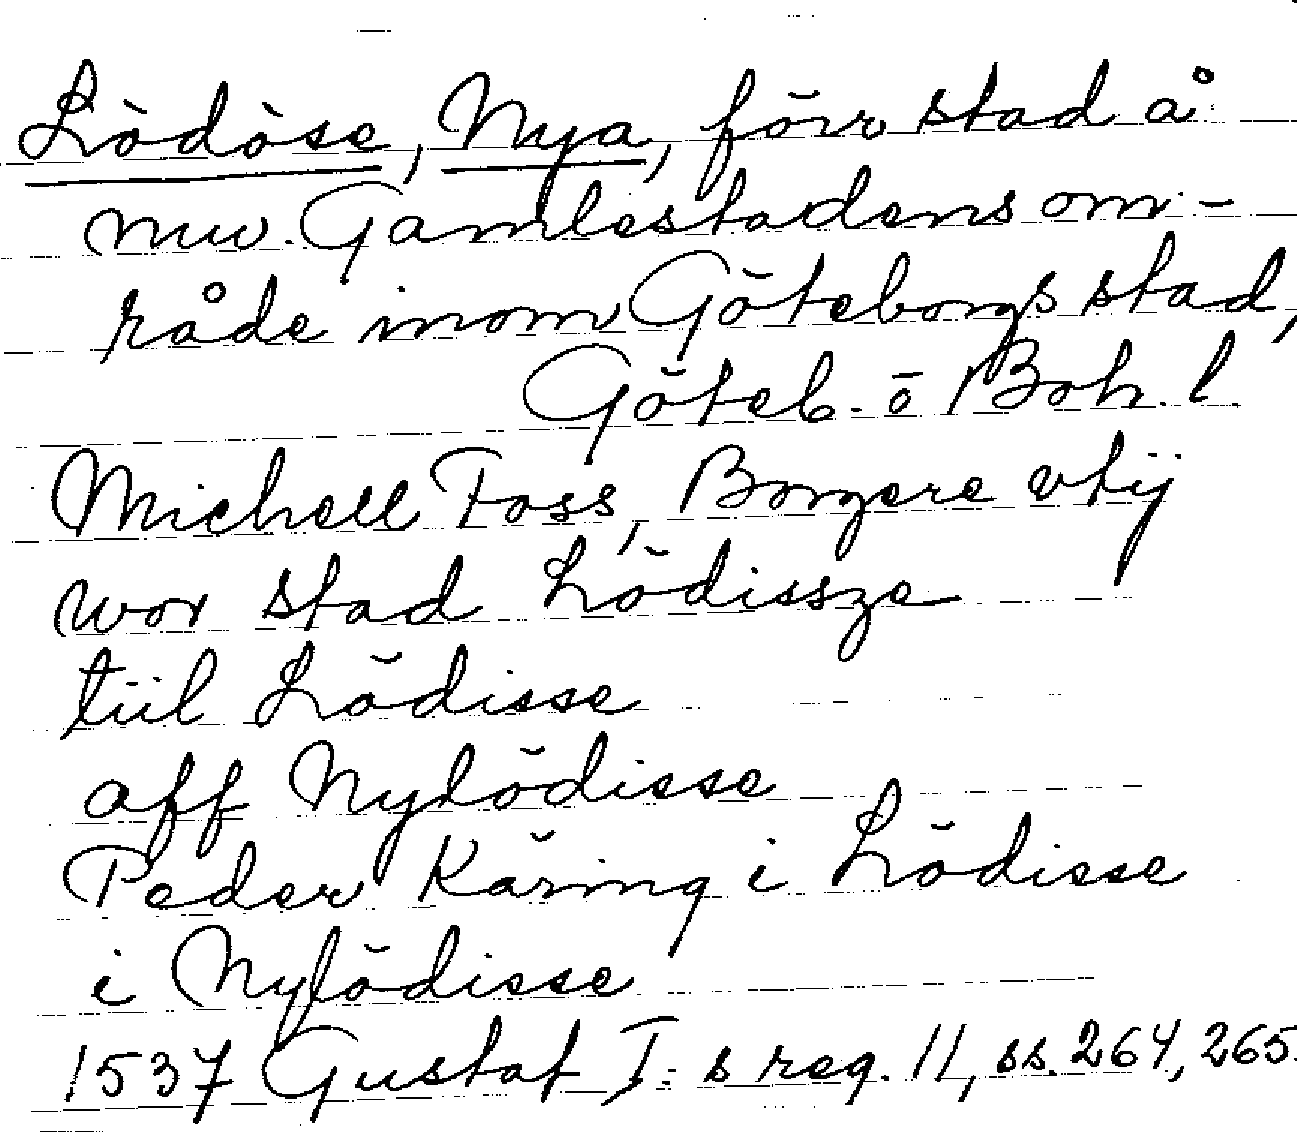 Lödöse, Nya, förr stad å
nuv. Gamlestadens om-
råde inom Göteborgs stad,
Göteb. o Boh. l
Michell Foss, Borgere vtij
wor stad Lödissze
tiil Lödisse
aff Nylödisse
Peder Käring i Lödisse
i Nylödisse
1537 Gustaf I:s reg. 11, ss. 264, 265.